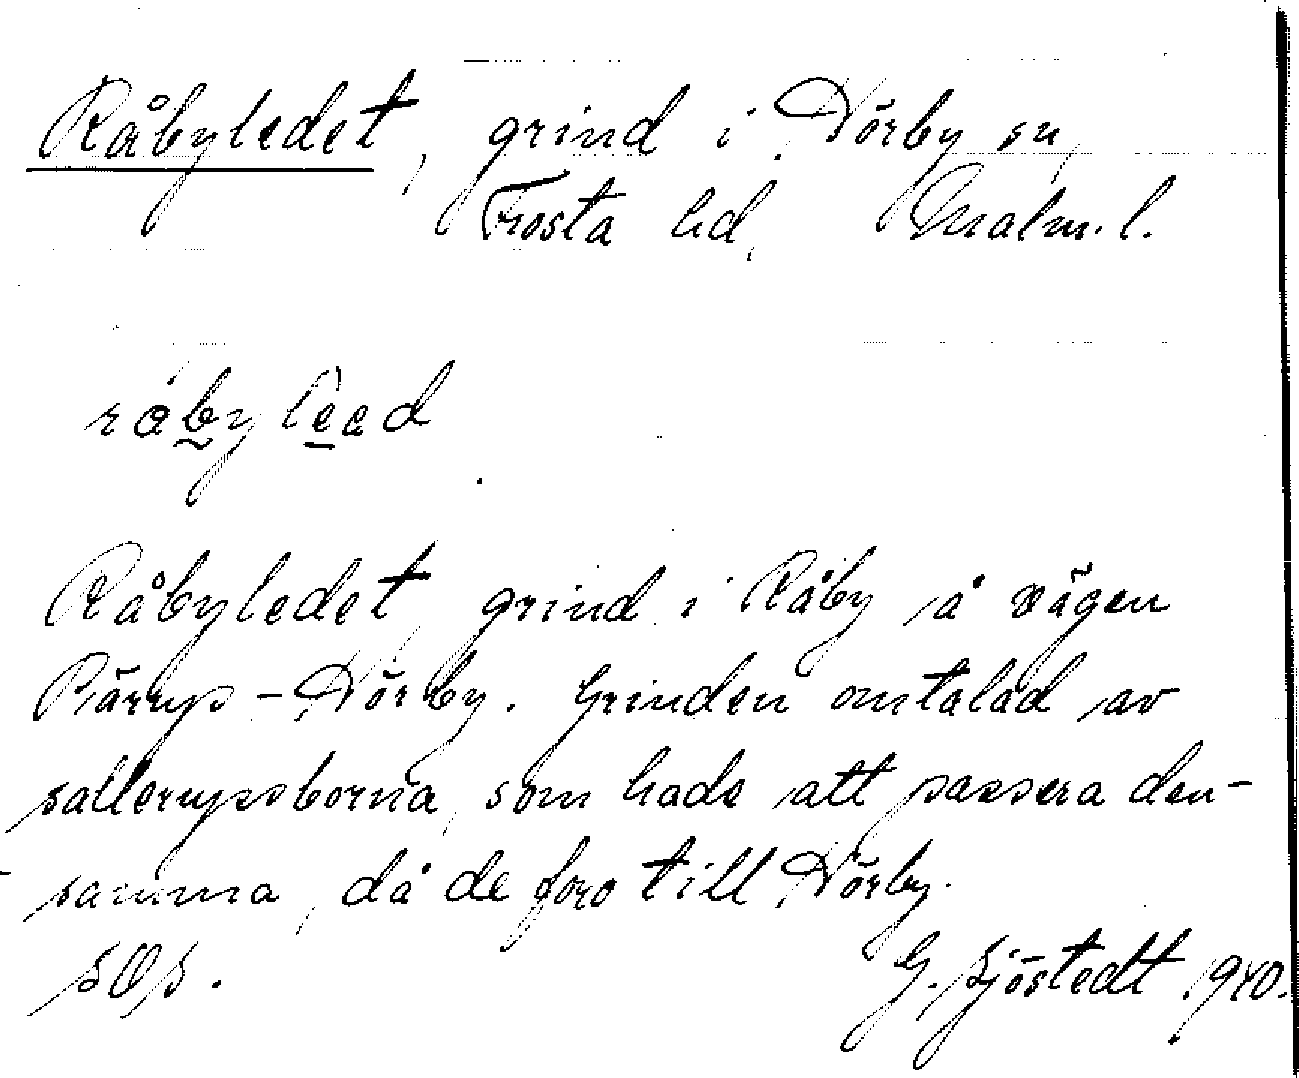 Råbyledet, grind i Hörby sn,
Frosta hd, Malm. l.
råbylead
Råbyledet, grind i Råby å vägen
Pärup - Hörby. Grinden omtalad av
sallerupsborna, som hade att passera den-
samma, då de foro till Hörby.
G. Sjöstedt 1940.